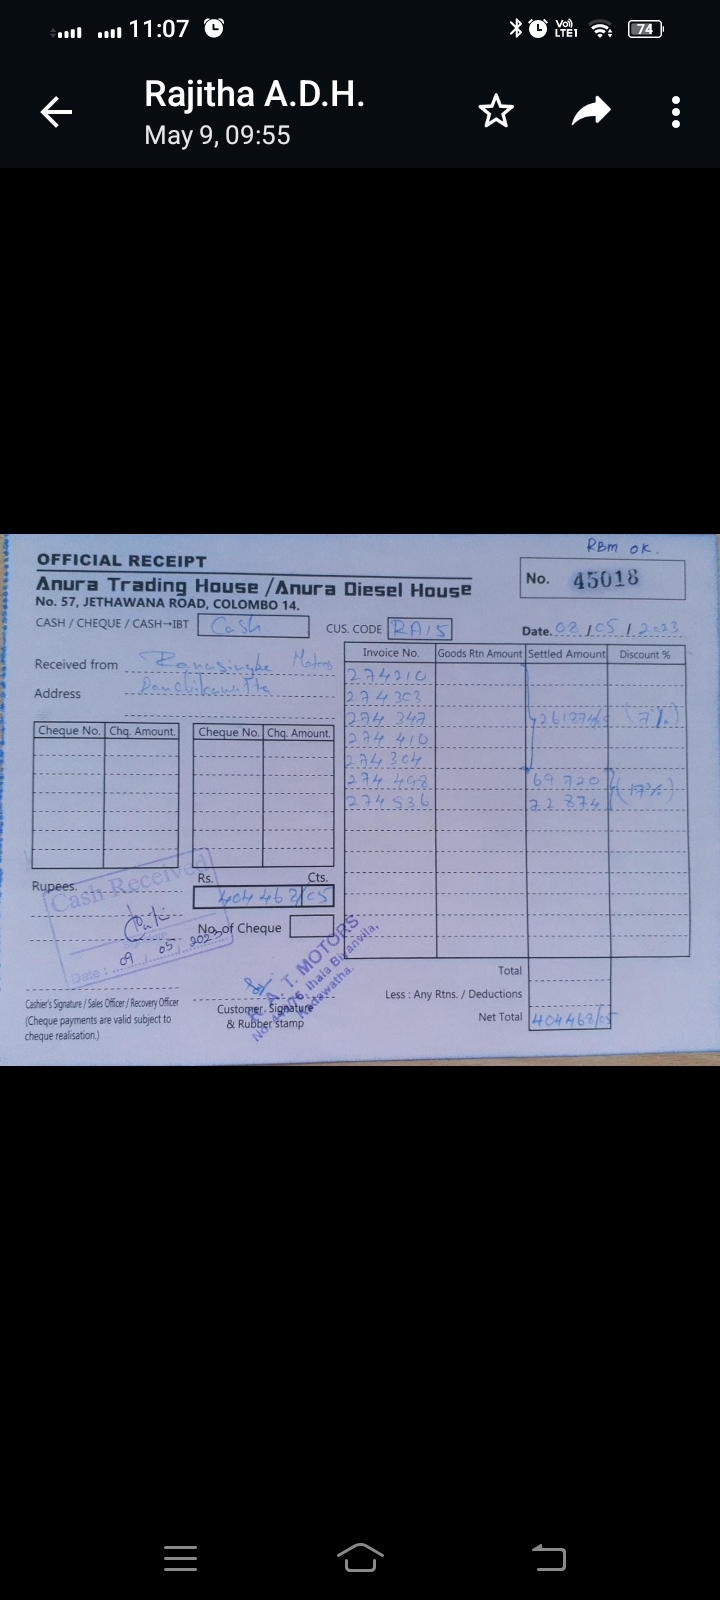 11:07 Vo) LTE1 74
Rajitha A.D.H.
May 9, 09:55
RBM OK.
OFFICIAL RECEIPT
Anura Trading House /Anura Diesel House
No. 57, JETHAWANA ROAD, COLOMBO 14.
No. 45018
CASH / CHEQUE / CASH→IBT Cash
CUS. CODE RA15
Date. 08 / 05 / 2023
Received from Ranasinghe Motors
Address Panchikawatta
Invoice No. Goods Rtn Amount Settled Amount Discount %
274210
274303
274 347 (7%)
274 410
274304
274 498 69 720 (17%)
274 536 72 874
Cheque No. Chq. Amount. Cheque No. Chq. Amount.
Cash Received
Rupees.
Rs. Cts.
404 468/05
No. of Cheque
Date : 09 05 2023
Total
Less : Any Rtns. / Deductions
Net Total 404468/05
Cashier's Signature / Sales Officer / Recovery Officer
(Cheque payments are valid subject to
cheque realisation.)
Customer Signature
& Rubber stamp
A. T. MOTORS
Ihala Biyanvila,
Kadawatha.